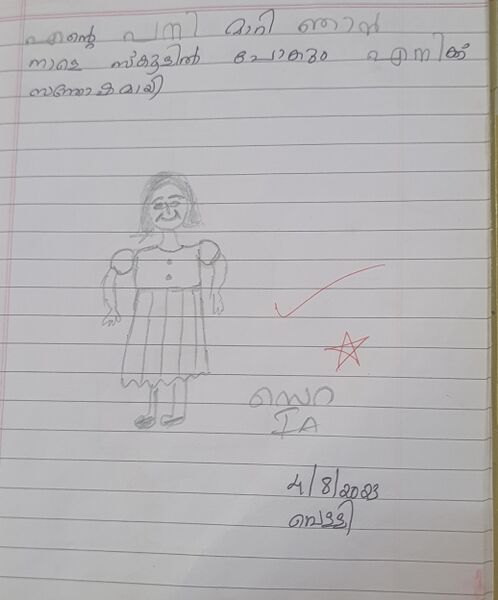 എന്റെ പനി മാറി ഞാൻ
നാളെ സ്കൂളിൽ പോകും എനിക്ക്
സന്തോഷമായി
സെറ
I A
4/8/2023
വെള്ളി